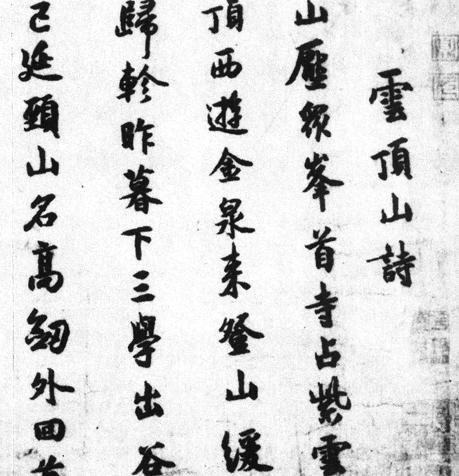 雲頂山詩
山壓衆峯首寺占紫雲
頂西遊金泉来登山緩
歸軫昨暮下三學出谷
已延頸山名高劒外回